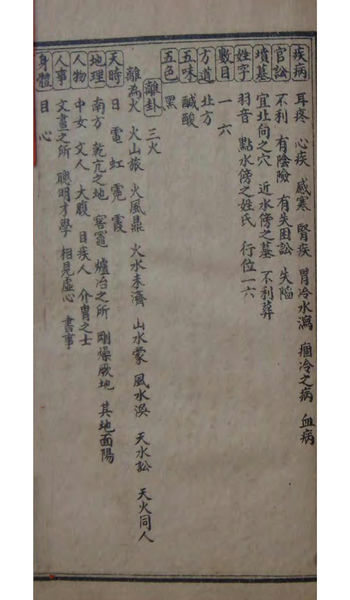 疾病 耳疼 心疾 感寒 腎疾 胃冷水瀉 痼冷之病 血病
官訟 不利 有陰險 有失因訟 失陷
墳墓 宜北向之穴 近水傍之墓 不利葬
姓字 羽音 點水傍之姓氏 行位一六
數目 一 六
方道 北方
五味 鹹酸
五色 黑
離卦 三火
離為火 火山旅 火風鼎 火水未濟 山水蒙 風水渙 天水訟 天火同人
天時 日 電 虹 霓 霞
地理 南方 乾亢之地 窖竈 爐冶之所 剛燥厥地 其地面陽
人物 中女 文人 大腹 目疾人 介胄之士
人事 文畫之所 聰明才學 相見虛心 書事
身體 目 心